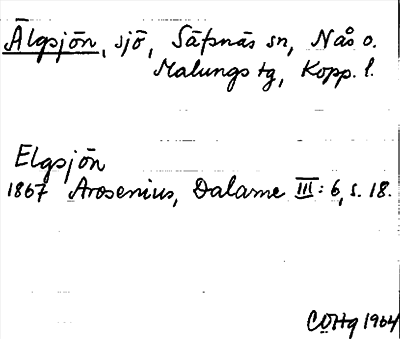 Älgsjön, sjö, Säfsnäs sn, Nås o.
Malungs tg, Kopp. l.
Elgsjön
1867 Arosenius, Dalarne III: 6, s. 18.
COHg 1964